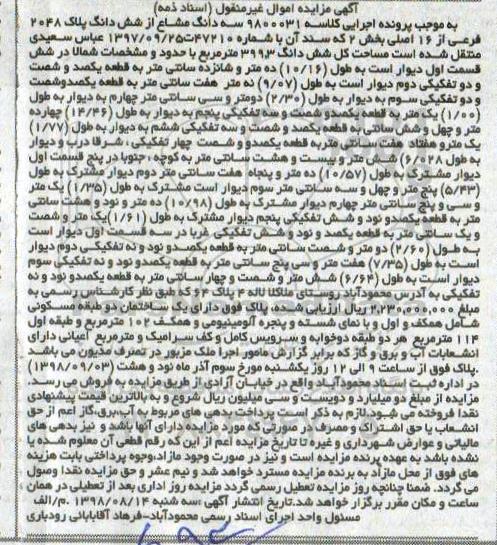 آگهی مزایده اموال غیرمنقول (اسناد ذمه)
به موجب پرونده اجرایی کلاسه ۹۸۰۰۰۳۱ سه دانگ مشاع از شش دانگ پلاک ۲۰۴۸
فرعی از ۱۶ اصلی بخش ۲ که سند آن با شماره ۴۷۲۱۰ت۱۳۹۷/۰۹/۲۵ عباس سعیدی
منتقل شده است مساحت کل شش دانگ ۳۹۹٫۳ مترمربع با حدود و مشخصات شمالا در شش
قسمت اول دیوار است به طول (۱۰/۱۶) ده متر و شانزده سانتی متر به قطعه یکصد و شصت
و دو تفکیکی دوم دیوار است به طول (۹/۰۷) نه متر هفت سانتی متر به قطعه یکصدوشصت
و دو تفکیکی سوم به دیوار به طول (۲/۳۰) دومتر و سی سانتی متر چهارم به دیوار به طول
(۱/۰۰) یک متر به قطعه یکصدو شصت و سه تفکیکی پنجم به دیوار به طول (۱۴/۴۶) چهارده
متر و چهل و شش سانتی به قطعه یکصد و شصت و سه تفکیکی ششم به دیوار به طول (۱/۷۷)
یک متر و هفتاد هفت سانتی متر به قطعه یکصدو و شصت چهار تفکیکی ، شرقا درب و دیوار
به طول (۶/۰۲۸) شش متر و بیست و هشت سانتی متر به کوچه ، جنوبا در پنج قسمت اول
دیوار مشترک به طول (۱۰/۵۷) ده متر و پنجاه هفت سانتی متر دوم دیوار مشترک به طول
(۵/۴۳) پنج متر و چهل و سه سانتی متر سوم دیوار است مشترک به طول (۱/۳۵) یک متر
و سی و پنج سانتی متر چهارم دیوار مشترک به طول (۱۰/۹۸) ده متر و نود و هشت سانتی
متر به قطعه یکصدو نود و شش تفکیکی پنجم دیوار مشترک به طول (۱/۶۱)یک متر و شصت
و یک سانتی متر به قطعه یکصد و نود و شش تفکیکی غربا در سه قسمت اول دیوار است
به طول (۲/۶۰) دو متر و شصت سانتی متر به قطعه یکصدو نود و نه تفکیکی دوم دیوار
است به طول (۷/۳۵) هفت متر و سی پنج سانتی متر به قطعه یکصدو نود و نه تفکیکی سوم
دیوار است به طول (۶/۶۴) شش متر و شصت و چهار سانتی متر به قطعه یکصدو نود و نه
تفکیکی به آدرس محمودآباد روستای ملاکلا لاله ۴ پلاک ۶۴ که طبق نظر کارشناس رسمی به
مبلغ ۲٫۲۳۰٫۰۰۰٫۰۰۰ ریال ارزیابی شده، پلاک فوق دارای یک ساختمان دو طبقه مسکونی
شامل همکف و اول و با نمای شسته و پنجره آلومینیومی و همکف ۱۰۲ مترمربع و طبقه اول
۱۱۴ مترمربع هر دو طبقه دوخوابه و سرویس کامل و کف سرامیک و مترمربع اعیانی دارای
انشعابات آب و برق و گاز که برابر گزارش مامور اجرا ملک مزبور در تصرف مدیون می باشد
.پلاک فوق از ساعت ۹ الی ۱۲ روز یکشنبه مورخ سوم آذر ماه نود و هشت (۱۳۹۸/۰۹/۰۳)
در اداره ثبت اسناد محمودآباد واقع در خیابان آزادی از طریق مزایده به فروش می رسد.
مزایده از مبلغ دو میلیارد و دویست و سی میلیون ریال شروع و به بالاترین قیمت پیشنهادی
نقدا فروخته می شود.لازم به ذکر است پرداخت بدهی های مربوط به آب،برق،گاز اعم از حق
انشعاب یا حق اشتراک و مصرف در صورتی که مورد مزایده دارای آنها باشد و نیز بدهی های
مالیاتی و عوارض شهرداری و غیره تا تاریخ مزایده اعم از این که رقم قطعی آن معلوم شده یا
نشده باشد به عهده برنده مزایده است و نیز در صورت وجود مازاد،وجوه پرداختی بابت هزینه
های فوق از محل مازاد به برنده مزایده مسترد خواهد شد و نیم عشر و حق مزایده نقدا وصول
می گردد. ضمنا چنانچه روز مزایده تعطیل رسمی گردد مزایده روز اداری بعد از تعطیلی در همان
ساعت و مکان مقرر برگزار خواهد شد.تاریخ انتشار آگهی :سه شنبه ۱۳۹۸/۰۸/۱۴ .م/الف
مسئول واحد اجرای اسناد رسمی محمودآباد-فرهاد آقابابائی رودباری